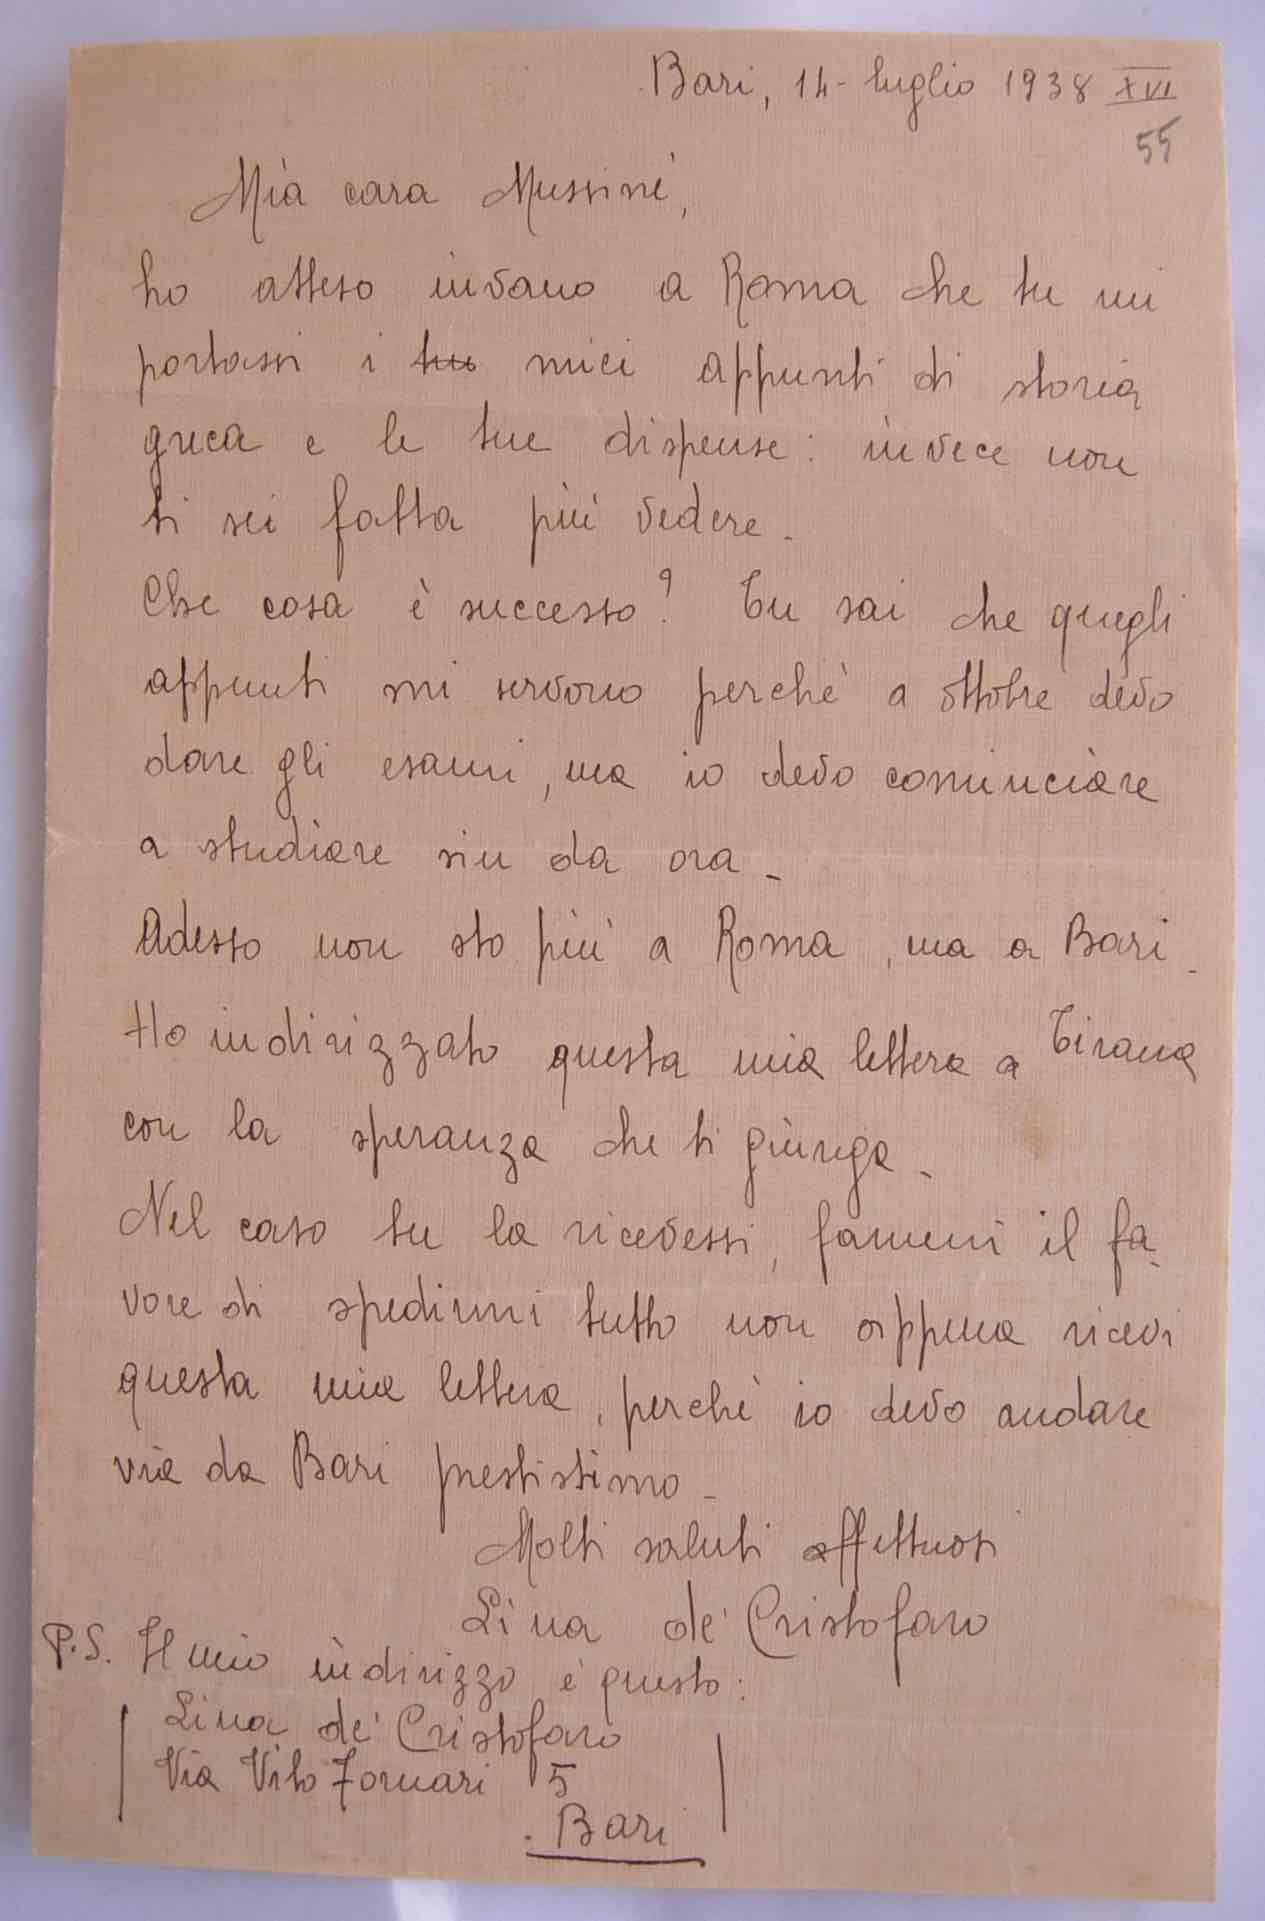 Bari, 14 - luglio 1938 XVI
55
Mia cara Mussinè,
ho atteso invano a Roma che tu mi
portassi i tuo miei appunti di storia
greca e le tue dispense: invece non
ti sei fatta più vedere -
Che cosa è successo? Tu sai che quegli
appunti mi servono perchè a ottobre devo
dare gli esami, ma io devo cominciare
a studiare sin da ora -
Adesso non sto più a Roma, ma a Bari -
Ho indirizzato questa mia lettera a Tirana
con la speranza che ti giunga -
Nel caso tu la ricevessi, fammi il fa-
vore di spedirmi tutto non appena ricevi
questa mia lettera, perchè io devo andare
via da Bari prestissimo -
Molti saluti affettuosi
Lina de' Cristofaro
P.S. Il mio indirizzo è questo:
Lina de' Cristofaro
Via Vito Fornari 5
Bari